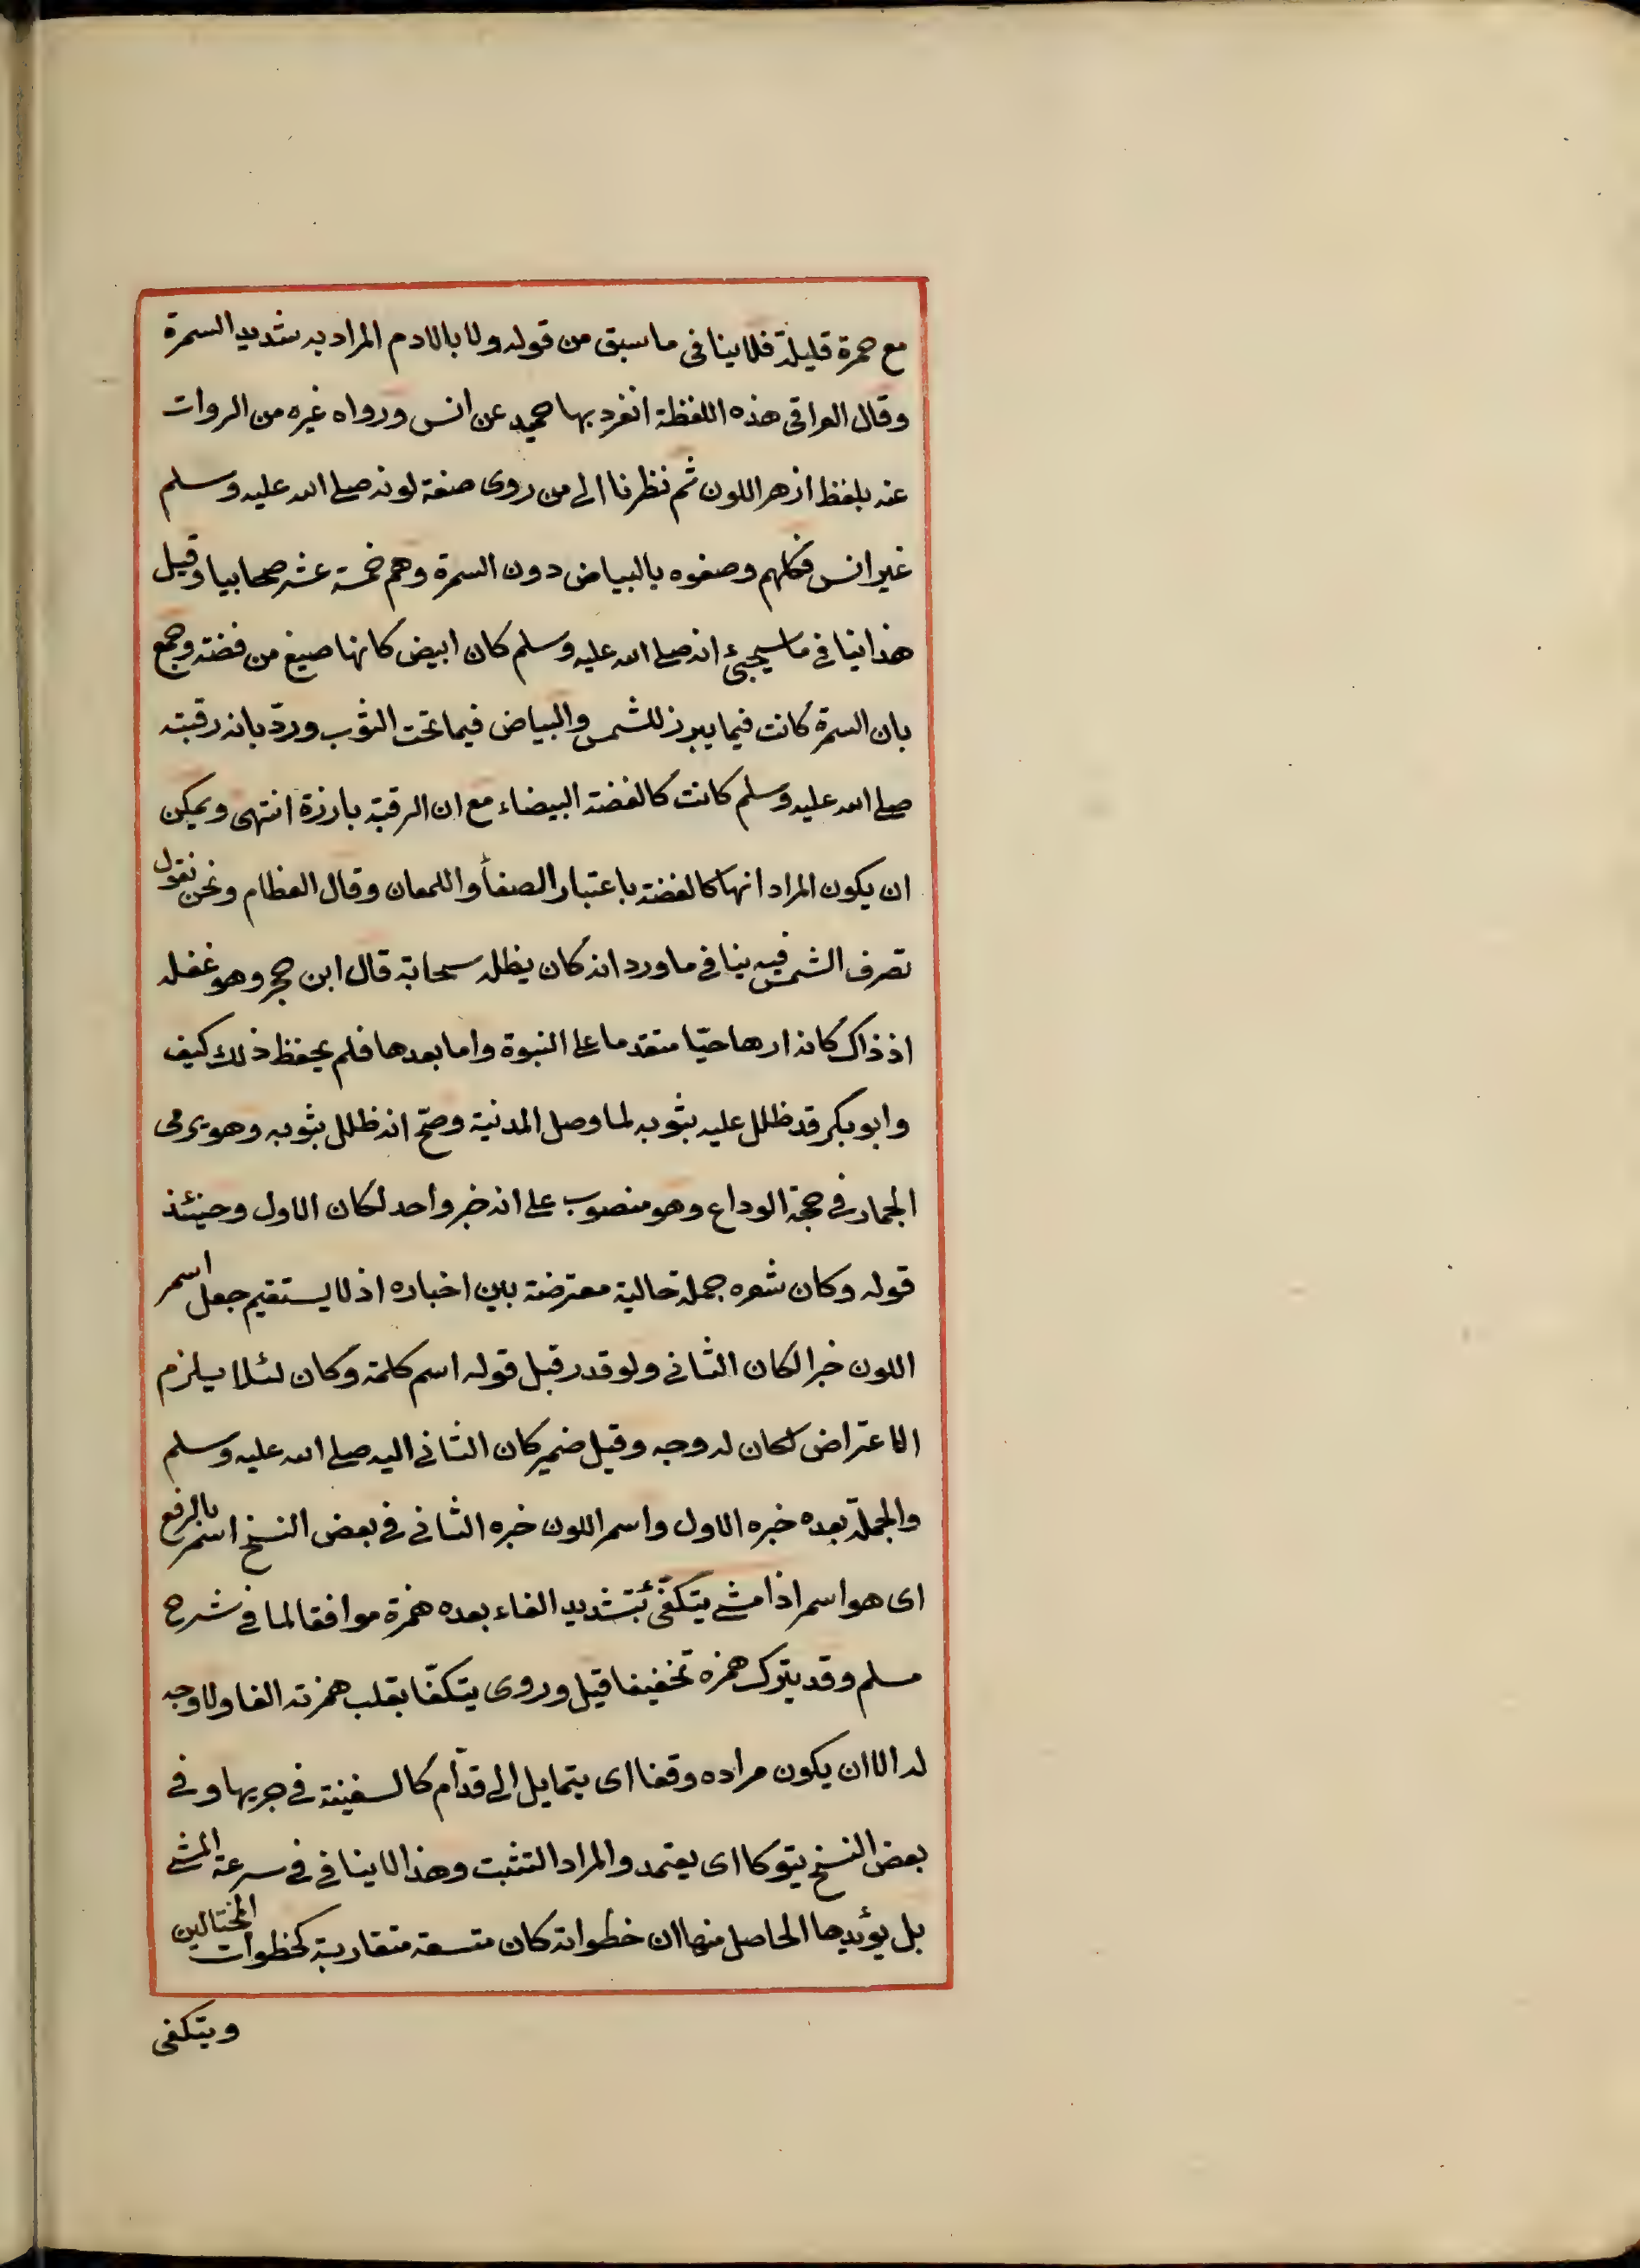 مع حمرة قليلة فلا ينافى ما سبق من قوله ولا بالادم المراد به شديد السمرة
وقال العراقى هذه اللفظة انفرد بها حميد عن انس ورواه غيره من الروات
عنه بلفظ ازهر اللون ثم نظرنا الى من روى صفة لونه صلى الله عليه وسلم
غير انس فكلهم وصفوه بالبياض دون السمرة وهم خمسة عشر صحابيا وقيل
هذا ينافى ما سيجيئ انه صلى الله عليه وسلم كان ابيض كانها صيغ من فضة وجمع
بان السمرة كانت فيما يبرز للشمس والبياض فيما تحت الثوب وردّ بانه رقبته
صلى الله عليه وسلم كانت كالفضة البيضاء مع ان الرقبة بارزة انتهى ويمكن
ان يكون المراد انها كالفضة باعتبار الصفأ واللمعان وقال العظام ونحن نقول
تصرف الشمس فيه ينافى ما ورد انه كان يظله سحابة قال ابن حجر وهو غفله
اذ ذاك كانه ارهاصيّا متقدما على النبوة واما بعدها فلم يحفظ ذلك كيف
وابو بكر قد ظلل عليه بثوبه لما وصل المدنية وصحّ انه ظلل بثوبه وهو يرمى
الجمار فى حجة الوداع وهو منصوب على انه خبر واحد لكان الاول وحينئذ
قوله وكان شعره جملة حالية معترضة بين اخباره اذ لا يستقيم جعل اسمر
اللون خبرا لكان الثانى ولو قدر قبل قوله اسم كلمة وكان لئلا يلزم
الاعتراض لكان له وجه وقيل ضمير كان الثانى اليه صلى الله عليه وسلم
والجملة بعده خبره الاول واسمر اللون خبره الثانى فى بعض النسخ اسمر بالرفع
اى هو اسمر اذا مشى يتكفّئ بتشديد الفاء بعده همزة موافقا لما فى شرح
مسلم وقد يترك همزه تخفيفا قيل وروى يتكفّا بقلب همزته الفا ولا وجه
له الا ان يكون مراده وقفا اى يتمايل الى قدّام كالسفينة فى جريها وفى
بعض النسخ يتوكا اى يعتمد والمراد التثبت وهذا لا ينافى فى سرعة المشى
بل يؤيدها الحاصل منها ان خطواته كان متسعة متقاربة كخطوات المختالين
ويتكفى